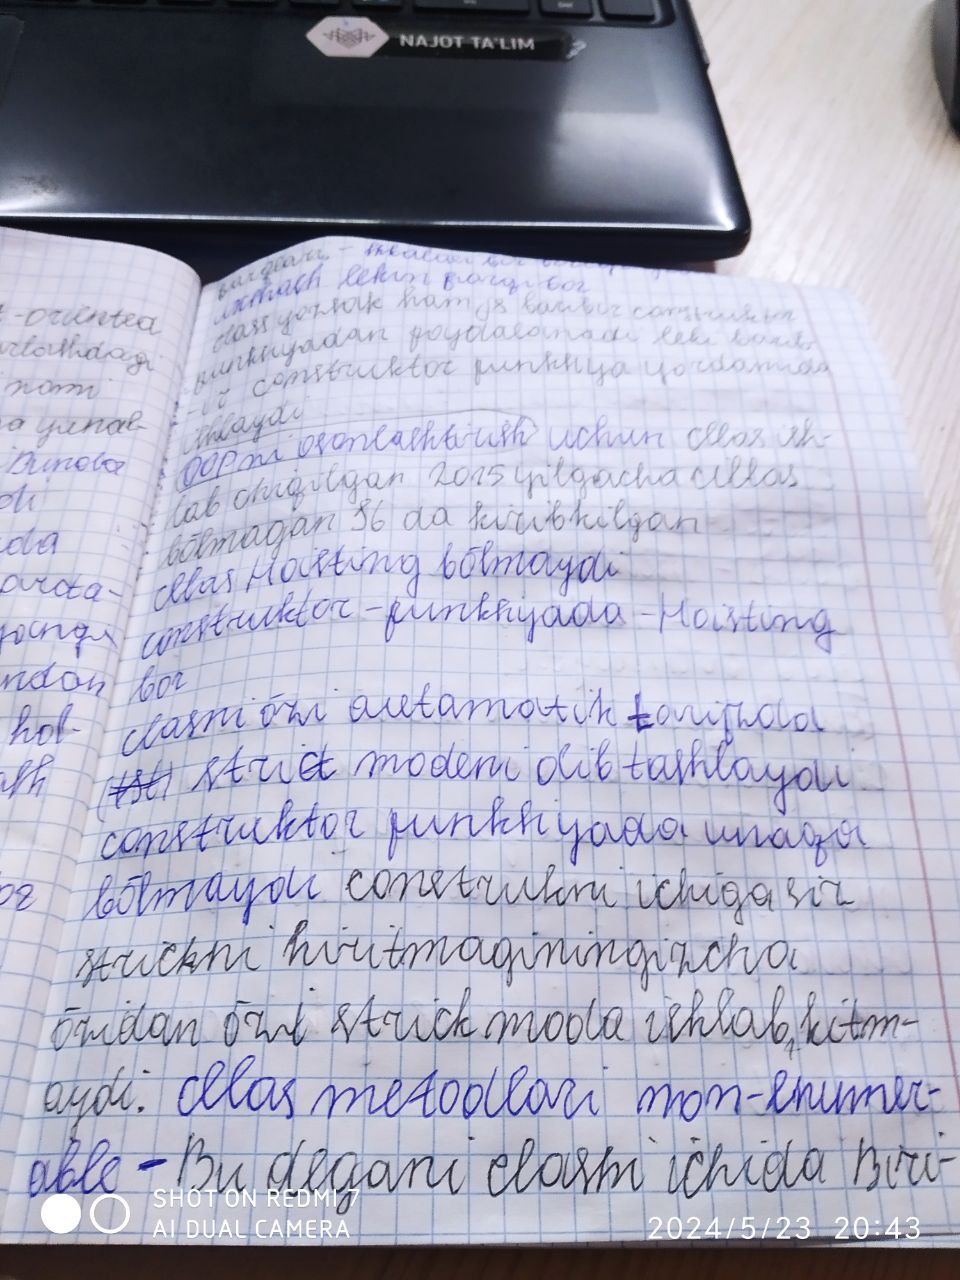 NAJOT TA'LIM
-orientea
nomi
Bunda
di
da
ndan
hol-
lekin farqi bor
class yozsak ham js baribir construktor
punkhyadan poydalanadi
-ir construktor punkhya yordamida
ishlaydi
OOPni osonlashtirish uchun cllas ish-
lab chiqilgan 2015 yilgacha cllas
bõlmagan S6 da kirib kilgan
cllas Hoisting bõlmaydi
construktor-punkhyada-Hoisting
bor
classni õzi avtamatik tarifda
strict modeni olib tashlaydi
construktor punkhiyada unaqa
bõlmaydi construkni ichiga siz
strickni kiritmaginingizcha
õzidan õzi strick moda ishlab kitm-
aydi. cllas metodlari non-enumer-
able - Bu degani clasni ichida Biri-
SHOT ON REDMI 7
AI DUAL CAMERA
2024/5/23 20:43